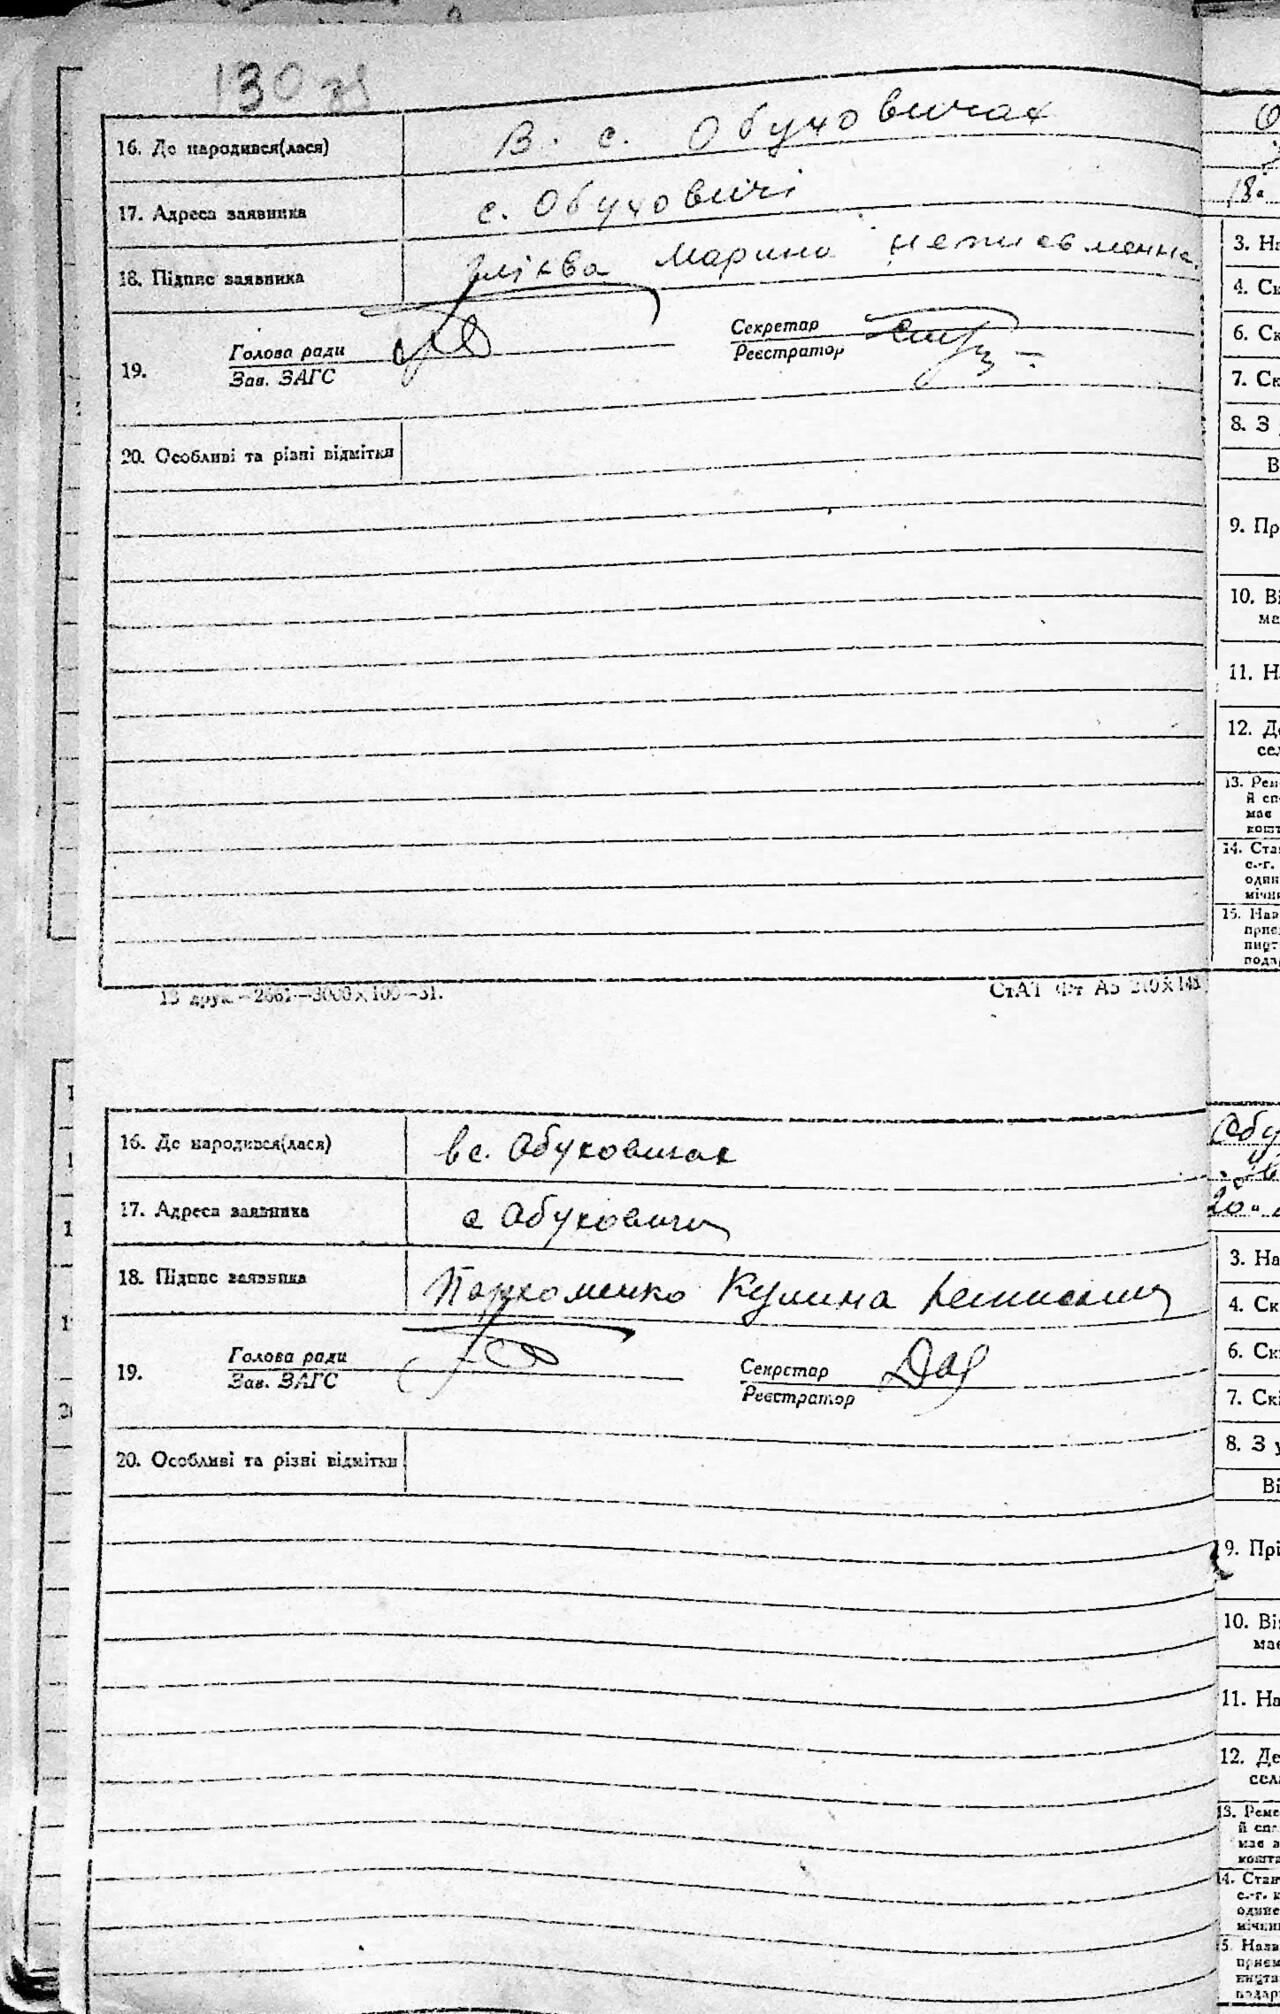 130 зв
16. Де народився(лася) В. с. Обуховичах
17. Адреса заявника с. Обуховичі
18. Підпис заявника Марина неписьменна
19. Голова ради
Зав. ЗАГС
Секретар
Реєстратор
20. Особливі та різні відмітки
13 друк.—2661—3000×100—31.
СтАТ Фт А5 210×148
16. Де народився(лася) вс. Обуховичах
17. Адреса заявника с Обуховичи
18. Підпис заявника Пархоменко Кулина
19. Голова ради
Зав. ЗАГС
Секретар
Реєстратор
20. Особливі та різні відмітки
18.
3. На
4. Ск
6. Ск
7. Ск
8. З
В
9. Пр
10. Ві
ма
11. Н
12. Де
сел
13. Рем
й сп
має
кошт
14. Ста
с.-г.
один
мічн
15. Наз
приє
пидт
пода
Обу
20.
3. На
4. Ск
6. Ск
7. Скі
8. З у
Ві
9. Прі
10. Він
має
11. На
12. Де
сел
13. Реме
й сп
має в
кошта
14. Стан
с.-г. к
одине
мічни
5. Назв
прием
подар